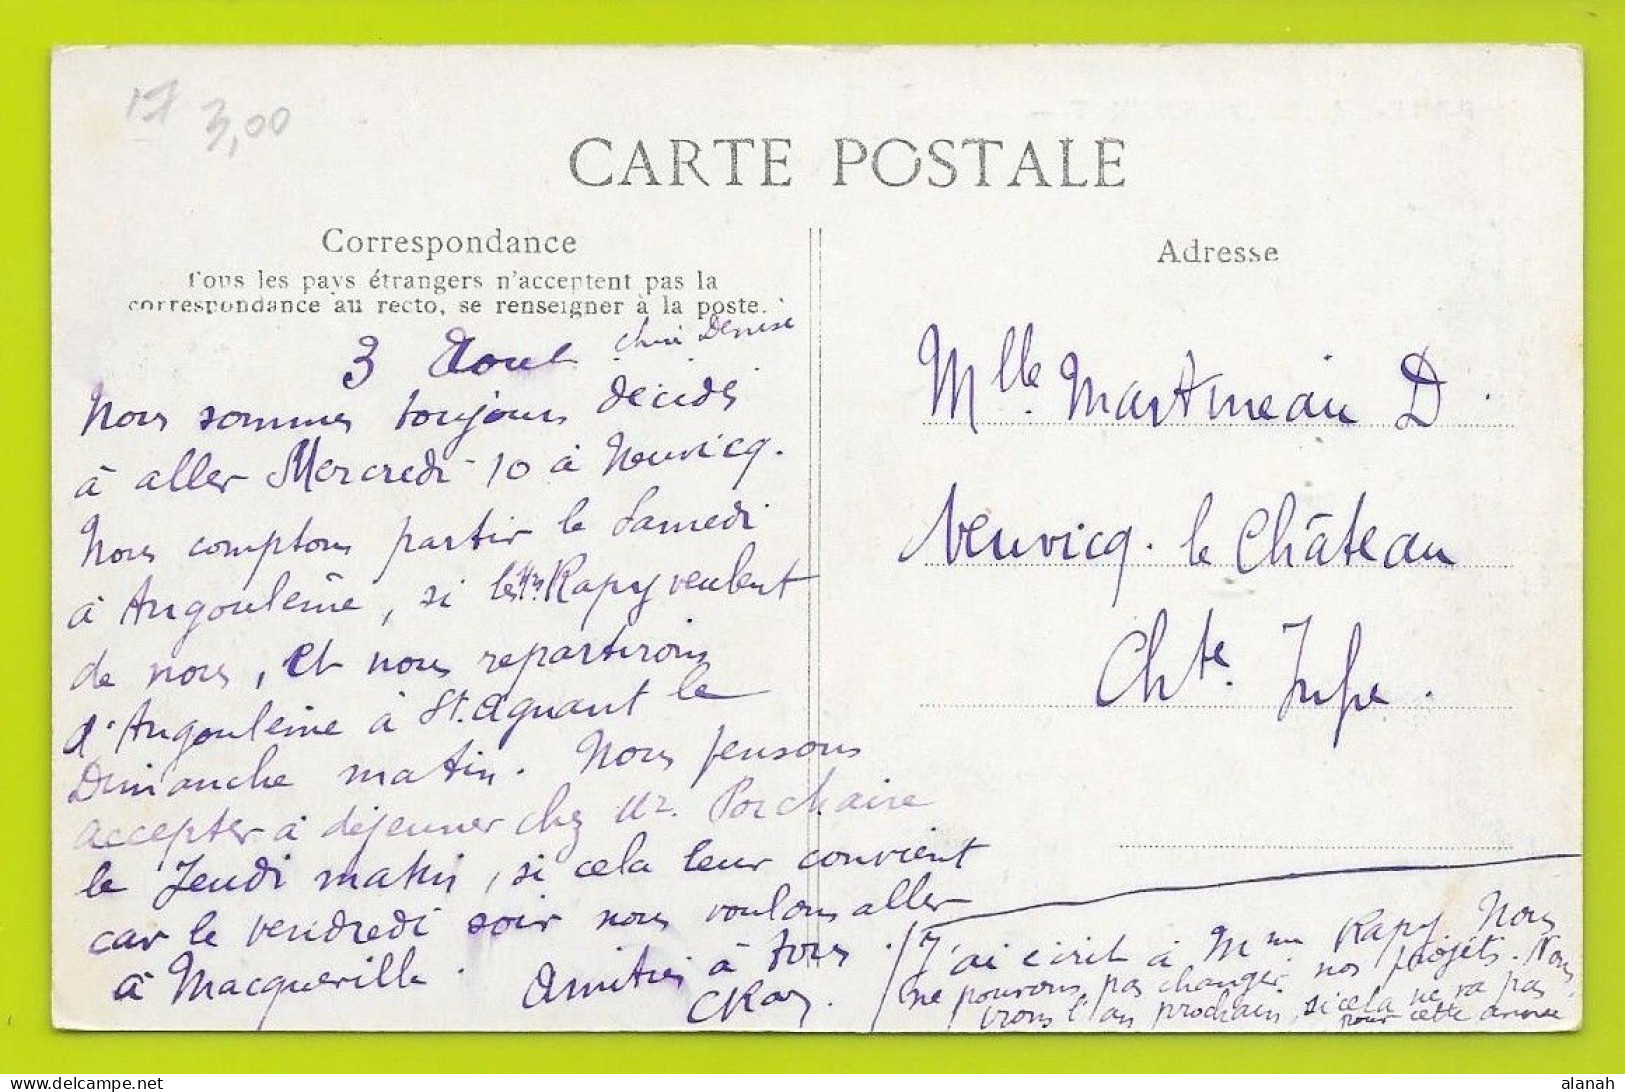 17 3,00
CARTE POSTALE
Correspondance
Tous les pays étrangers n'acceptent pas la
correspondance au recto, se renseigner à la poste.
Adresse
3 Aout chère Denise
Nous sommes toujours décidés
à aller Mercredi 10 à Neuvicq.
Nous comptons partir le Samedi
à Angoulême, si les Rapy veulent
de nous, et nous repartirons
d'Angoulême à St. Agnant le
Dimanche matin. Nous pensons
accepter à déjeuner chez Mr. Porchaire
le Jeudi matin, si cela leur convient
car le vendredi soir nous voulons aller
à Macqueville. Amitiés à tous.
J'ai écrit à Mme Rapy. Nous
ne pouvons pas changer nos projets. Nous
irons l'an prochain, si cela ne va pas
pour cette année
Mlle Martineau D.
Neuvicq. le Château
Chte. Infre.
alanah